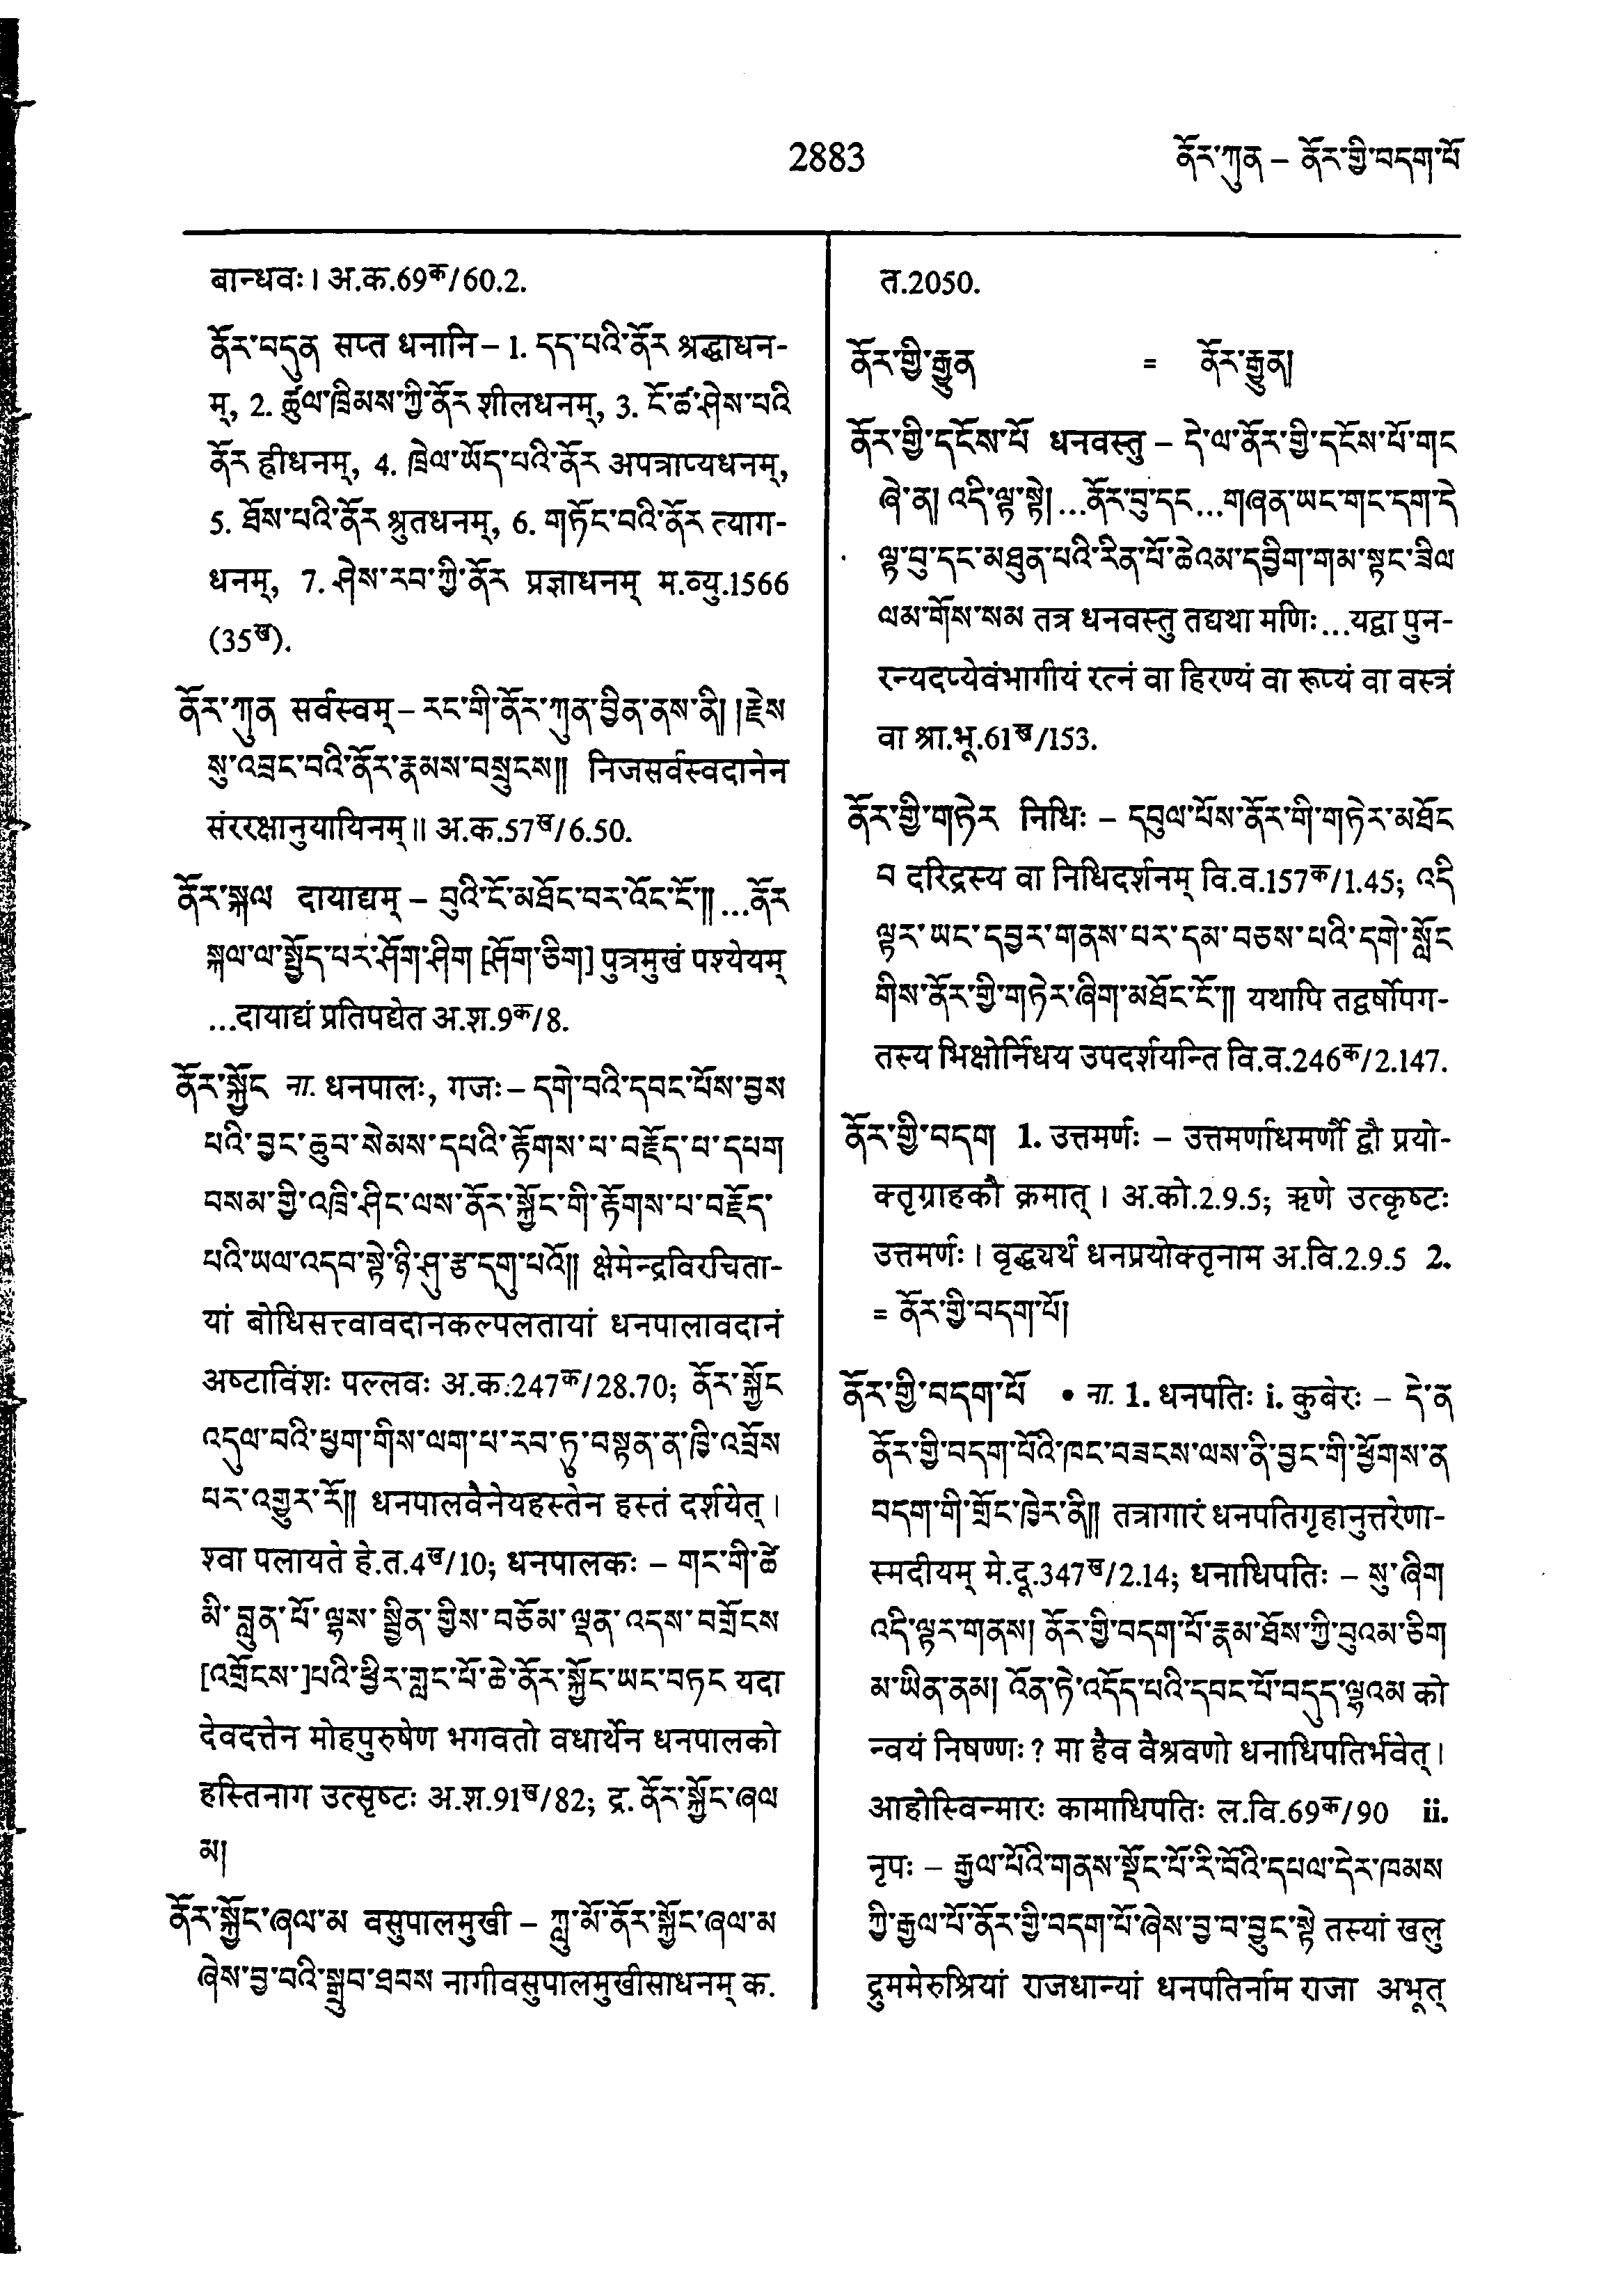 2883
ནོར་ཀུན – ནོར་གྱི་བདག་པོ
बान्धवः। अ.क.69क/60.2.
ནོར་བདུན सप्त धनानि – 1. དད་པའི་ནོར श्रद्धाधन-
म्, 2. ཚུལ་ཁྲིམས་ཀྱི་ནོར शीलधनम्, 3. ངོ་ཚ་ཤེས་པའི
ནོར ह्रीधनम्, 4. ཁྲེལ་ཡོད་པའི་ནོར अपत्राप्यधनम्,
5. ཐོས་པའི་ནོར श्रुतधनम्, 6. གཏོང་བའི་ནོར त्याग-
धनम्, 7. ཤེས་རབ་ཀྱི་ནོར प्रज्ञाधनम् म.व्यु.1566
(35ख).
ནོར་ཀུན सर्वस्वम् – རང་གི་ནོར་ཀུན་བྱིན་ནས་ནི། །རྗེས
སུ་འབྲང་བའི་ནོར་རྣམས་བསྲུངས༎ निजसर्वस्वदानेन
संररक्षानुयायिनम्॥ अ.क.57ख/6.50.
ནོར་སྐལ दायाद्यम् – བུའི་ངོ་མཐོང་བར་འོང་ངོ་༎ ...ནོར
སྐལ་ལ་སྤྱོད་པར་ཤོག་ཤིག [ཤོག་ཅིག] पुत्रमुखं पश्येयम्
...दायाद्यं प्रतिपद्येत अ.श.9क/8.
ནོར་སྐྱོང ना. धनपालः, गजः – དགེ་བའི་དབང་པོས་བྱས
པའི་བྱང་ཆུབ་སེམས་དཔའི་རྟོགས་པ་བརྗོད་པ་དཔག
བསམ་གྱི་འཁྲི་ཤིང་ལས་ནོར་སྐྱོང་གི་རྟོགས་པ་བརྗོད་
པའི་ཡལ་འདབ་སྟེ་ཉི་ཤུ་རྩ་དགུ་པའོ༎ क्षेमेन्द्रविरचिता-
यां बोधिसत्त्वावदानकल्पलतायां धनपालावदानं
अष्टाविंशः पल्लवः अ.क.247क/28.70; ནོར་སྐྱོང
འདུལ་བའི་ཕྱག་གིས་ལག་པ་རབ་ཏུ་བསྟན་ན་ཁྱི་འབྲོས
པར་འགྱུར་རོ༎ धनपालवैनेयहस्तेन हस्तं दर्शयेत्।
श्वा पलायते हे.त.4ख/10; धनपालकः – གང་གི་ཚེ
མི་བླུན་པོ་ལྷས་སྦྱིན་གྱིས་བཅོམ་ལྡན་འདས་བགྲོངས
[འགྲོངས་]པའི་ཕྱིར་གླང་པོ་ཆེ་ནོར་སྐྱོང་ཡང་བཏང यदा
देवदत्तेन मोहपुरुषेण भगवतो वधार्थेन धनपालको
हस्तिनाग उत्सृष्टः अ.श.91ख/82; द्र. ནོར་སྐྱོང་ཞལ
མ།
ནོར་སྐྱོང་ཞལ་མ वसुपालमुखी – ཀླུ་མོ་ནོར་སྐྱོང་ཞལ་མ
ཞེས་བྱ་བའི་སྒྲུབ་ཐབས नागीवसुपालमुखीसाधनम् क.
त.2050.
ནོར་གྱི་རྒྱུན = ནོར་རྒྱུན།
ནོར་གྱི་དངོས་པོ धनवस्तु – དེ་ལ་ནོར་གྱི་དངོས་པོ་གང
ཞེ་ན། འདི་ལྟ་སྟེ། ...ནོར་བུ་དང...གཞན་ཡང་གང་དག་དེ
ལྟ་བུ་དང་མཐུན་པའི་རིན་པོ་ཆེའམ་དབྱིག་གམ་སྟང་ཟིལ
ལམ་གོས་སམ तत्र धनवस्तु तद्यथा मणिः...यद्वा पुन-
रन्यदप्येवंभागीयं रत्नं वा हिरण्यं वा रूप्यं वा वस्त्रं
वा श्रा.भू.61ख/153.
ནོར་གྱི་གཏེར निधिः – དབུལ་པོས་ནོར་གི་གཏེར་མཐོང
བ दरिद्रस्य वा निधिदर्शनम् वि.व.157क/1.45; འདི
ལྟར་ཡང་དབྱར་གནས་པར་དམ་བཅས་པའི་དགེ་སློང
གིས་ནོར་གྱི་གཏེར་ཞིག་མཐོང་ངོ་༎ यथापि तद्वर्षोपग-
तस्य भिक्षोर्निधय उपदर्शयन्ति वि.व.246क/2.147.
ནོར་གྱི་བདག 1. उत्तमर्णः – उत्तमर्णाधमर्णौ द्वौ प्रयो-
क्तृग्राहकौ क्रमात्। अ.को.2.9.5; ऋणे उत्कृष्टः
उत्तमर्णः। वृद्ध्यर्थं धनप्रयोक्तृनाम अ.वि.2.9.5 2.
= ནོར་གྱི་བདག་པོ།
ནོར་གྱི་བདག་པོ • ना. 1. धनपतिः i. कुबेरः – དེ་ན
ནོར་གྱི་བདག་པོའི་ཁང་བཟངས་ལས་ནི་བྱང་གི་ཕྱོགས་ན
བདག་གི་གྲོང་ཁྱེར་ནི༎ तत्रागारं धनपतिगृहानुत्तरेणा-
स्मदीयम् मे.दू.347ख/2.14; धनाधिपतिः – སུ་ཞིག
འདི་ལྟར་གནས། ནོར་གྱི་བདག་པོ་རྣམ་ཐོས་ཀྱི་བུའམ་ཅིག
མ་ཡིན་ནམ། འོན་ཏེ་འདོད་པའི་དབང་པོ་བདུད་ལྟའམ को
न्वयं निषण्णः? मा हैव वैश्रवणो धनाधिपतिर्भवेत्।
आहोस्विन्मारः कामाधिपतिः ल.वि.69क/90 ii.
नृपः – རྒྱལ་པོའི་གནས་སྡོང་པོ་རི་བོའི་དཔལ་དེར་ཁམས
ཀྱི་རྒྱལ་པོ་ནོར་གྱི་བདག་པོ་ཞེས་བྱ་བ་བྱུང་སྟེ तस्यां खलु
द्रुममेरुश्रियां राजधान्यां धनपतिर्नाम राजा अभूत्